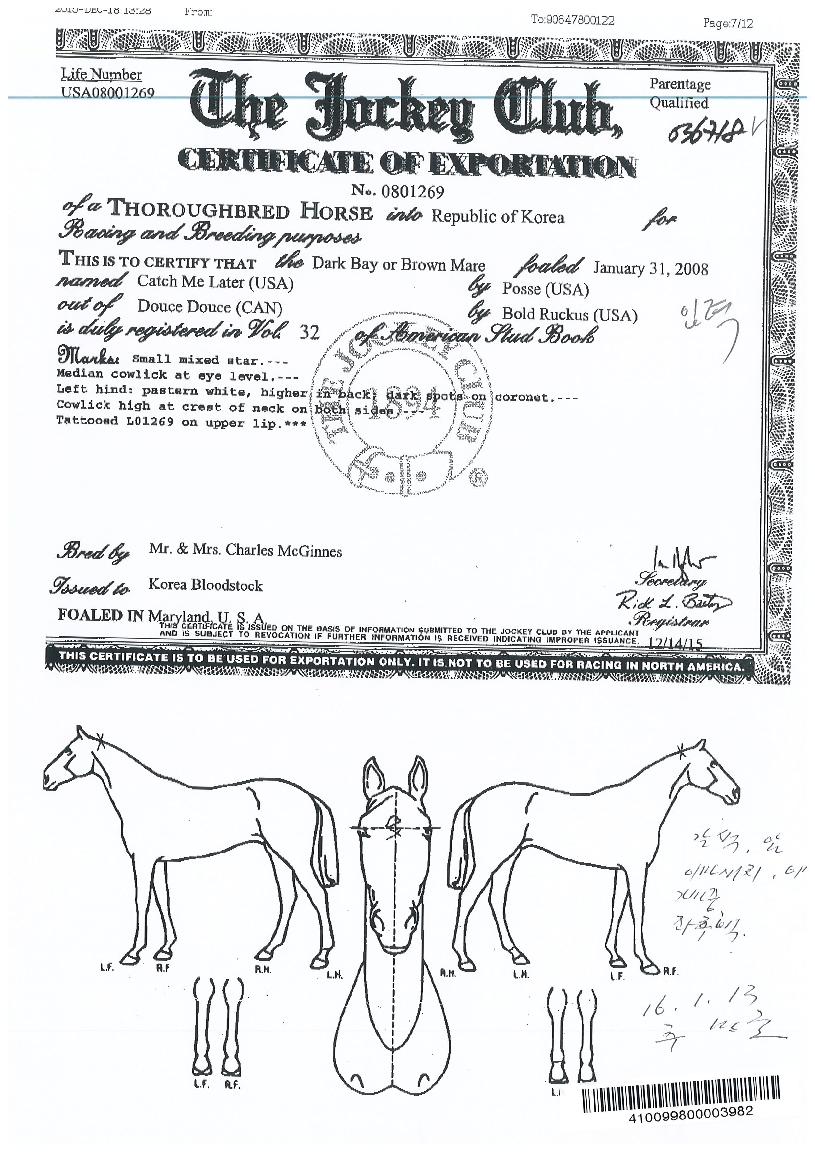 To:90647800122
Page:7/12
Life Number
USA08001269
The Jockey Club,
Parentage
Qualified
CERTIFICATE OF EXPORTATION
No. 0801269
of a THOROUGHBRED HORSE into Republic of Korea for
Racing and Breeding purposes
THIS IS TO CERTIFY THAT the Dark Bay or Brown Mare foaled January 31, 2008
named Catch Me Later (USA) by Posse (USA)
out of Douce Douce (CAN) by Bold Ruckus (USA)
is duly registered in Vol. 32 of American Stud Book
Marks: Small mixed star.---
Median cowlick at eye level.---
Left hind: pastern white, higher in back; dark spots on coronet.---
Cowlick high at crest of neck on both sides.
Tattooed L01269 on upper lip.***
THE JOCKEY CLUB
1894
®
Bred by Mr. & Mrs. Charles McGinnes
Secretary
Issued to Korea Bloodstock
Registrar
FOALED IN Maryland, U. S. A.
THIS CERTIFICATE IS ISSUED ON THE BASIS OF INFORMATION SUBMITTED TO THE JOCKEY CLUB BY THE APPLICANT
AND IS SUBJECT TO REVOCATION IF FURTHER INFORMATION IS RECEIVED INDICATING IMPROPER ISSUANCE.
12/14/15
THIS CERTIFICATE IS TO BE USED FOR EXPORTATION ONLY. IT IS NOT TO BE USED FOR RACING IN NORTH AMERICA.
L.F. R.F R.H. L.H. R.H. L.H. L.F. R.F.
L.F. R.F.
16. 1. 13
410099800003982